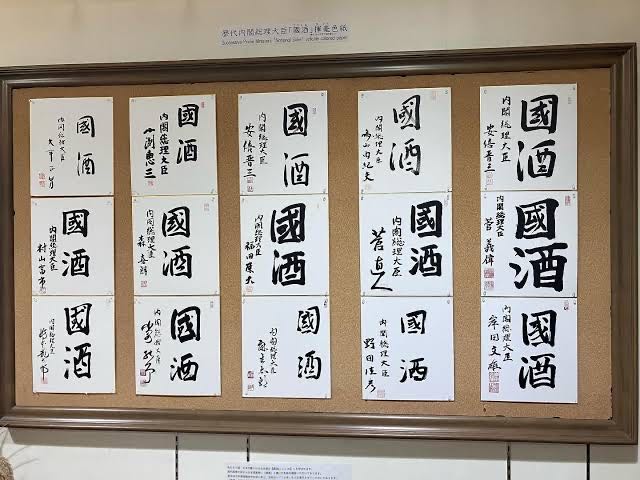 歴代内閣総理大臣「國酒」揮毫色紙
Successive Prime Ministers' "National Sake" colored paper
國酒
内閣総理大臣
大平正芳
國酒
内閣総理大臣
村山富市
國酒
内閣総理大臣
橋本龍太郎
國酒
内閣総理大臣
小渕恵三
國酒
内閣総理大臣
森喜朗
國酒
内閣総理大臣
國酒
内閣総理大臣
安倍晋三
國酒
内閣総理大臣
福田康夫
國酒
内閣総理大臣
麻生太郎
國酒
内閣総理大臣
鳩山由紀夫
國酒
内閣総理大臣
菅直人
國酒
内閣総理大臣
野田佳彦
國酒
内閣総理大臣
安倍晋三
國酒
内閣総理大臣
菅義偉
國酒
内閣総理大臣
岸田文雄